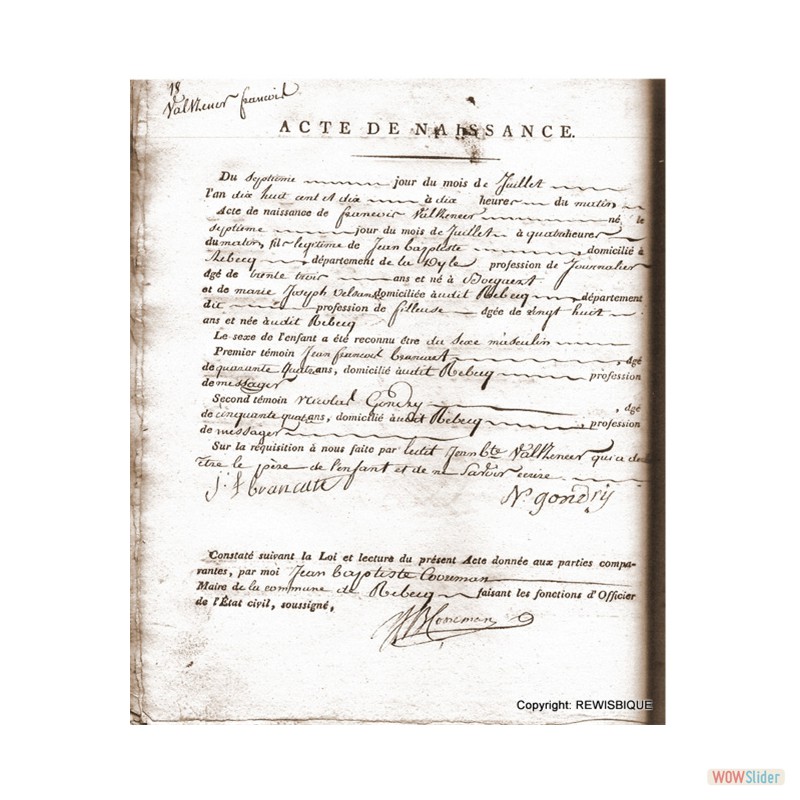 18
Valkeneer francois
ACTE DE NAISSANCE.
Du septieme jour du mois de Juillet
l'an dix huit cent et dix à dix heures du matin
Acte de naissance de francois Valkeneer né le
septieme jour du mois de Juillet à quatre heures
du matin, fils legitime de Jean baptiste , domicilié à
Rebecq , département de la Dyle profession de Journalier
âgé de trente trois ans et né à
et de marie Joseph domiciliée audit Rebecq , département
dit profession de fileuse âgée de vingt huit
ans et née audit Rebecq
Le sexe de l'enfant a été reconnu être du sexe masculin
Premier témoin Jean francois brancart , âgé
de quarante quatre ans, domicilié audit Rebecq profession
de messager
Second témoin Nicolas Gondry , âgé
de cinquante quatre ans, domicilié audit Rebecq , profession
de messager
Sur la réquisition à nous faite par ledit Jean Bte Valkeneer qui a dit
être le père de l'enfant et de ne savoir ecrire.
j. f brancart
N. gondry
Constaté suivant la Loi et lecture du présent Acte donnée aux parties compa-
rantes, par moi Jean baptiste Cooreman
Maire de la commune de Rebecq faisant les fonctions d'Officier
de l'État civil, soussigné,
JB Cooreman
Copyright: REWISBIQUE
WOWSlider